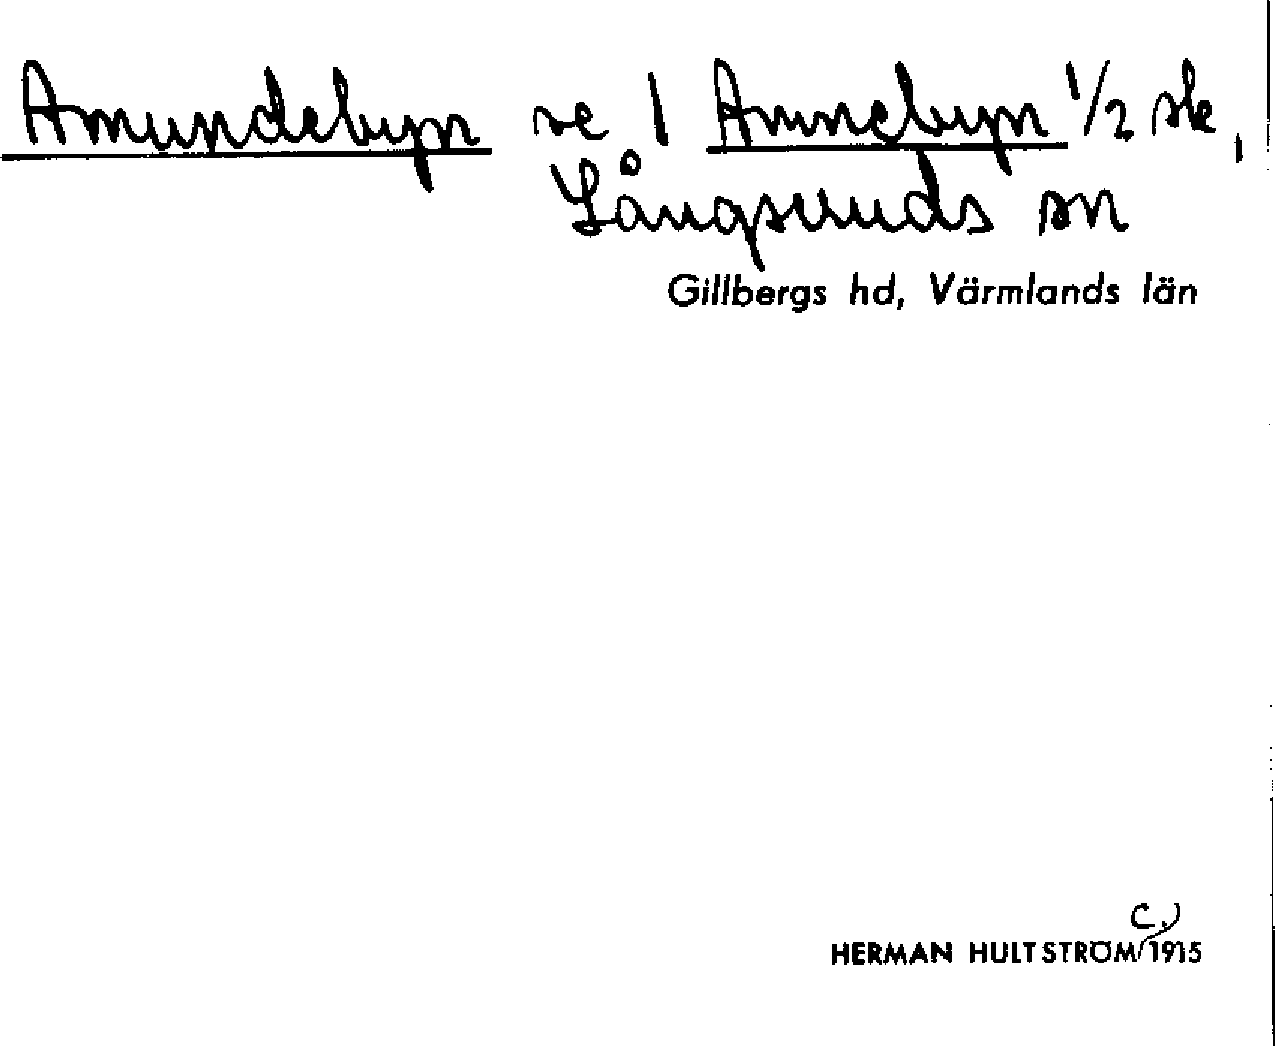 Amundebyn se 1 Annebyn 1/2 sk,
Långseruds sn
Gillbergs hd, Värmlands län
C.
HERMAN HULTSTRÖM 1915